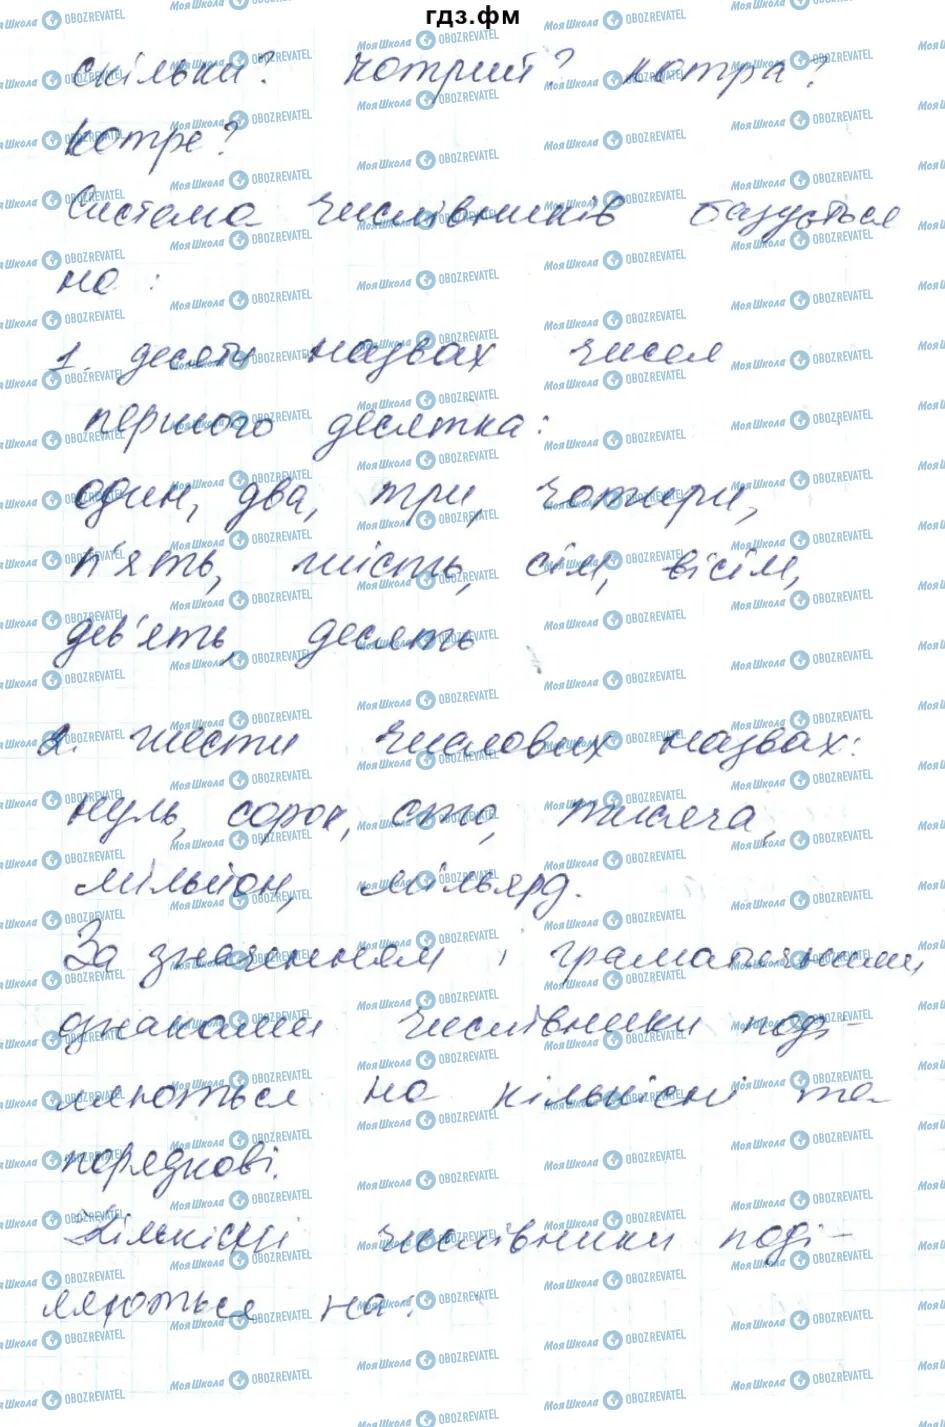 гдз.фм
скільки? котрий? котра?
котре?
Система числівників базується
на:
1. десяти назвах чисел
першого десятка:
один, два, три, чотири,
п'ять, шість, сім, вісім,
дев'ять, десять
2. шести числових назвах:
нуль, сорок, сто, тисяча,
мільйон, мільярд.
За значенням і граматичними
ознаками числівники поді-
ляються на кількісні та
порядкові.
Кількісні числівники поді-
ляються на: